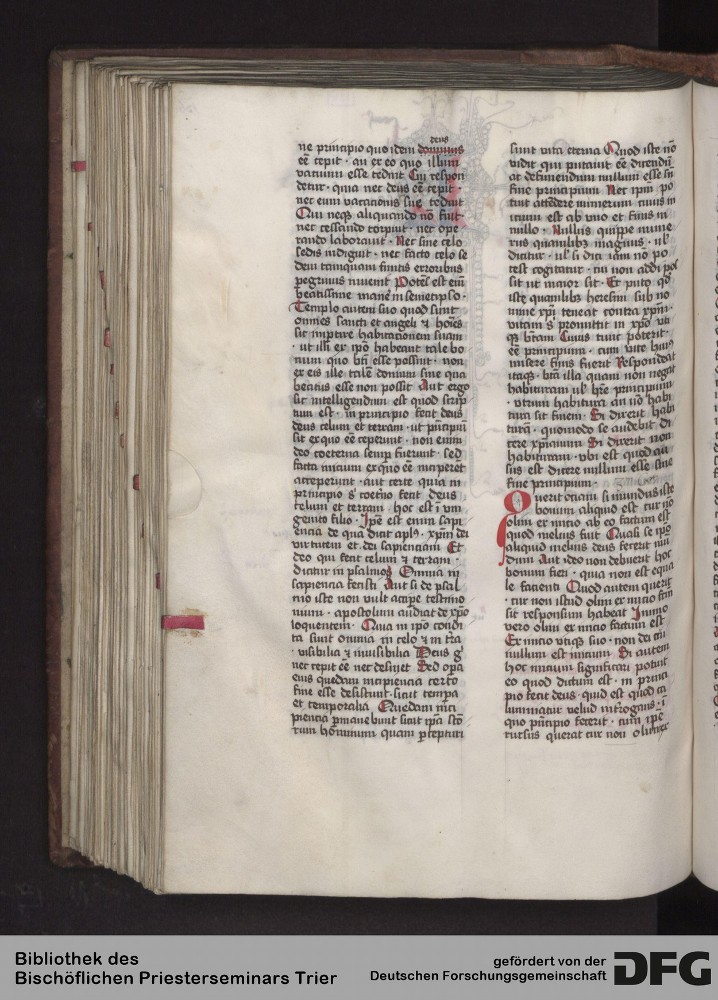 deus
ne principio quo idem dominus
eē cepit · an ex eo quo illum
vacuum esse credūt Cui respon
detur · quia nec deus eē cepit ·
nec eum vacationis sue tediuit
Qui neqꝫ aliquando nō fuit ·
nec cessando torpuit · nec ope
rando laborauit · Nec sine celo
sedis indiguit · nec facto celo se
dem tamquam finitis erroribus
peregrinus inuenit Potēs est eīn
beatissime manē in semetipso ·
Templo autem suo quod sunt
omnes sancti et angeli ⁊ hoīes
sic impertire habitacionem suam
· ut illi ex ipō habeant tale bo
num quo bti esse possint · non
ex eis ille talē domum sine qua
beatus esse non possit Aut ergo
sic intelligendum est quod scrip
tum est · in principio fecit deus
deus celum et terram · ut pncipiū
sit ex quo eē ceperunt · non enim
deo coeterna semꝑ fuerunt · sed
facta inicium ex quo eē inciperēt
acceperunt · aut certe quia in
principio s' coet'no fecit deus
celum et terram · hoc est ī vni
genito filio · Ip̄e est enim sapi
encia de qua dicit apl's · xpm̄ dei
virtutem et dei sapienciam Et
deo qui fecit celum ⁊ terram ·
dicitur in psalmos Omnia in
sapiencia fecisti Aut si de psal
mo iste non vult accipe testimo
nium · apostolum audiat de xpo
loquentem · Quia in ipō condi
ta sunt omnia in celo ⁊ in t'ra
· visibilia ⁊ inuisibilia Deus g'
nec cepit eē nec desinet Sed opa
eius quedam incipiencia certo
fine esse desistunt · sicut tempa
et temporalia Quedam inci
piencia pmanebunt sicut ipa sco
rum hominum quam pcepturi
sunt vita eterna Quod iste nō
vidit qui putauit eē dicendū
at definiendum nullum esse sn̄
fine principium Nec ipm̄ po
tuit attēdere numerum cuius in
icium est ab vno et finis in
nullo · Nullus quippe nume
rus quamlibꝫ magnus · ul'
dicitur · ul' si dici iam nō po
test cogitatur · cui non addi pos
sit ut maior sit · Et puto qd'
iste quamlibꝫ heresim sub no
mine xpi teneat contra xpm̄ ·
vitam s' promittit in xpo vti
qꝫ btam Cuius tunc poterit ·
eē principium · cum vite huiꝰ
misere finis fuerit Respondeat
itaqꝫ · bta illa quam non negat
habituram ul' hr̄e principium
· vtrum habitura an nō habi
tura sit finem · Si dixerit habi
turā · quomodo se audebit di
cere xpianum Si dixerit non
habituram · vbi est quod au
sus est dicere nullum esse sine
fine principium ·
Querit eciam si mundus iste
bonum aliquid est cur nō
olim ex inicio ab eo factum est
quod melius fuit Quasi se ipo
aliquid melius deus fecerit mū
dum Aut ideo non debuerit hoc
bonum fieri · quia non est equa
le facienti Quod autem querit
· cur non istud olim ex inicio fcm̄
sit responsum habeat Immo
vero olim ex inicio factum est
Ex inicio vtiqꝫ suo · non dei cui
nullum est inicium Si autem
hoc inicium significari potuit
eo quod dictum est · in princi
pio fecit deus · quid est quod ca
lumniatur velud introgans · ī
quo pncipio fecerit · cum ipē
rursus querat cur non olim ex
Bibliothek des
Bischöflichen Priesterseminars Trier
gefördert von der
Deutschen Forschungsgemeinschaft
DFG